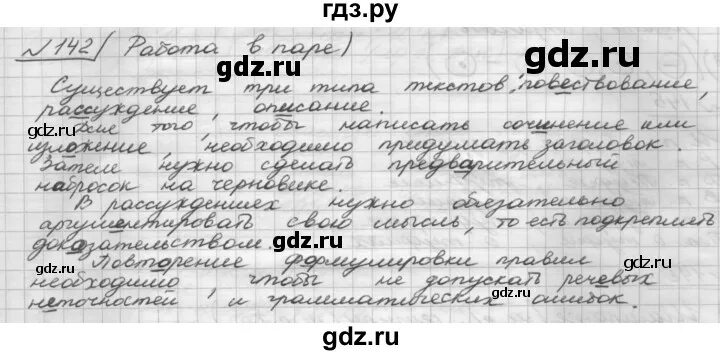 гдз.ру
№142 (Работа в паре)
Существует три типа текстов: повествование,
рассуждение, описание.
Для того, чтобы написать сочинение или
изложение, необходимо придумать заголовок.
Затем нужно сделать предварительный
набросок на черновике.
В рассуждениях нужно обязательно
аргументировать свою мысль, то есть подкреплять
доказательством.
Повторение формулировки правил
необходимо, чтобы не допускать речевых
неточностей и грамматических ошибок.
gdz.ru
gdz.ru
gdz.ru
gdz.ru
gdz.ru
gdz.ru
gdz.ru
gdz.ru
gdz.ru
gdz.ru
gdz.ru